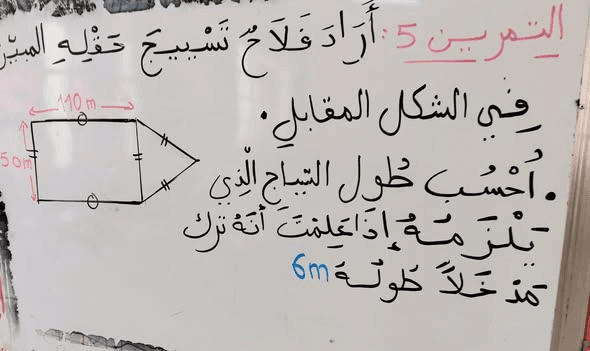 التمرين 5: أَرَادَ فَلَاحٌ تَسْيِيجَ حَقْلِهِ المبيّن
فِي الشكل المقابلِ.
110 m
50m
. أُحْسُب طُول السّياج الّذِي
يَلْزَمُهُ إِذَا عَلِمْتَ أَنَهُ ترك
مَدْخَلاً طُولُهُ 6m